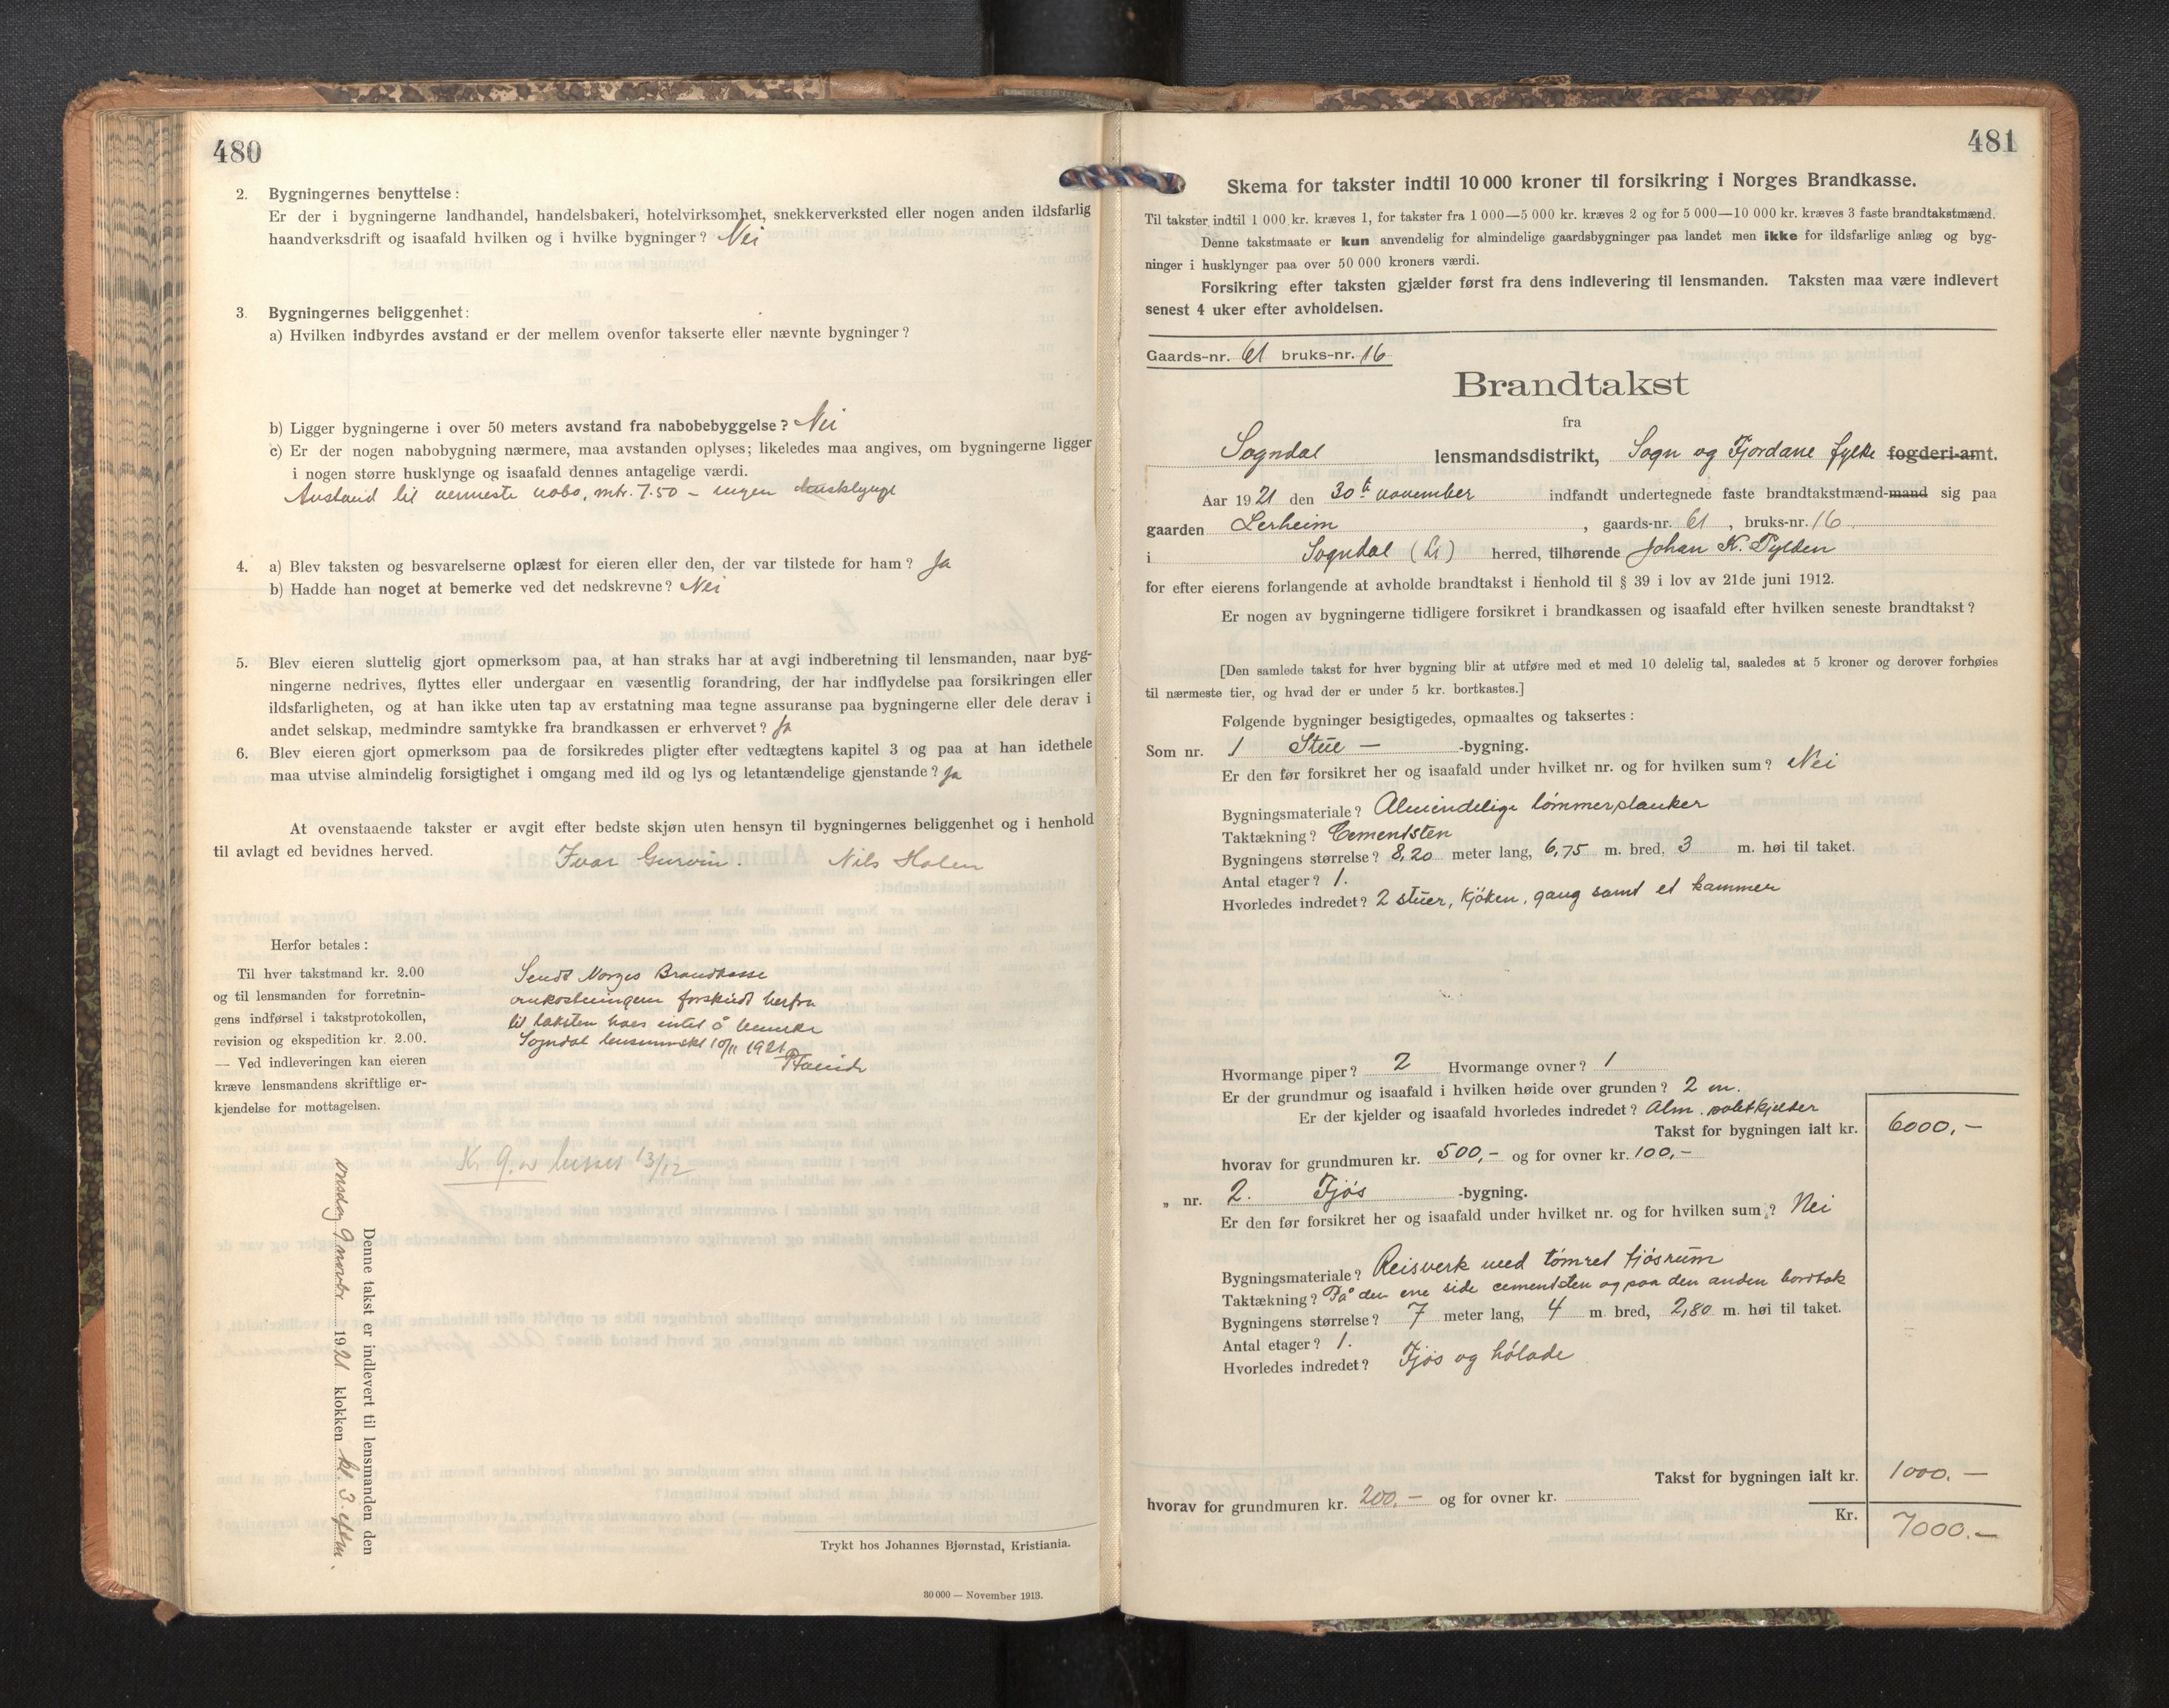 480
2. Bygningernes benyttelse:
Er der i bygningerne landhandel, handelsbakeri, hotelvirksomhet, snekkerverksted eller nogen anden ildsfarlig
haandverksdrift og isaafald hvilken og i hvilke bygninger? Nei
3. Bygningernes beliggenhet:
a) Hvilken indbyrdes avstand er der mellem ovenfor takserte eller nævnte bygninger?
b) Ligger bygningerne i over 50 meters avstand fra nabobebyggelse? Nei
c) Er der nogen nabobygning nærmere, maa avstanden oplyses; likeledes maa angives, om bygningerne ligger
i nogen større husklynge og isaafald dennes antagelige værdi.
Avstand til nermeste nabo, mtr. 7.50 – ingen husklynge
4. a) Blev taksten og besvarelserne oplæst for eieren eller den, der var tilstede for ham? Ja
b) Hadde han noget at bemerke ved det nedskrevne? Nei
5. Blev eieren sluttelig gjort opmerksom paa, at han straks har at avgi indberetning til lensmanden, naar byg-
ningerne nedrives, flyttes eller undergaar en væsentlig forandring, der har indflydelse paa forsikringen eller
ildsfarligheten, og at han ikke uten tap av erstatning maa tegne assuranse paa bygningerne eller dele derav i
andet selskap, medmindre samtykke fra brandkassen er erhvervet? Ja
6. Blev eieren gjort opmerksom paa de forsikredes pligter efter vedtægtens kapitel 3 og paa at han idethele
maa utvise almindelig forsigtighet i omgang med ild og lys og letantændelige gjenstande? Ja
At ovenstaaende takster er avgit efter bedste skjøn uten hensyn til bygningernes beliggenhet og i henhold
til avlagt ed bevidnes herved.
Ivar Gurvin. Nils Holen
Herfor betales:
Til hver takstmand kr. 2.00
og til lensmanden for forretnin-
gens indførsel i takstprotokollen,
revision og ekspedition kr. 2.00.
— Ved indleveringen kan eieren
kræve lensmandens skriftlige er-
kjendelse for mottagelsen.
Sendt Norges Brandkasse
omkostningen forskudt herfra
til taksten haes intet å bemerke
Sogndal 10/11 1921
Kr 9.00 13/12
Denne takst er indlevert til lensmanden den
onsdag 9 novbr. 1921 klokken kl. 3. eftm.
Trykt hos Johannes Bjørnstad, Kristiania.
30 000 — November 1913.
481
Skema for takster indtil 10 000 kroner til forsikring i Norges Brandkasse.
Til takster indtil 1 000 kr. kræves 1, for takster fra 1 000—5 000 kr. kræves 2 og for 5 000—10 000 kr. kræves 3 faste brandtakstmænd.
Denne takstmaate er kun anvendelig for almindelige gaardsbygninger paa landet men ikke for ildsfarlige anlæg og byg-
ninger i husklynger paa over 50 000 kroners værdi.
Forsikring efter taksten gjælder først fra dens indlevering til lensmanden. Taksten maa være indlevert
senest 4 uker efter avholdelsen.
Gaards-nr. 61 bruks-nr. 16
Brandtakst
fra
Sogndal lensmandsdistrikt, Sogn og Fjordane fylke fogderi-amt.
Aar 1921 den 30te november indfandt undertegnede faste brandtakstmænd-mand sig paa
gaarden Lerheim, gaards-nr. 61, bruks-nr. 16
i Sogndal herred, tilhørende Johan K. Pylden
for efter eierens forlangende at avholde brandtakst i henhold til § 39 i lov av 21de juni 1912.
Er nogen av bygningerne tidligere forsikret i brandkassen og isaafald efter hvilken seneste brandtakst?
[Den samlede takst for hver bygning blir at utføre med et med 10 delelig tal, saaledes at 5 kroner og derover forhøies
til nærmeste tier, og hvad der er under 5 kr. bortkastes.]
Følgende bygninger besigtigedes, opmaaltes og taksertes:
Som nr. 1 Stue — -bygning.
Er den før forsikret her og isaafald under hvilket nr. og for hvilken sum? Nei
Bygningsmateriale? Almindelige tømmerplanker
Taktækning? Cementsten
Bygningens størrelse? 8,20 meter lang, 6,75 m. bred, 3 m. høi til taket.
Antal etager? 1.
Hvorledes indredet? 2 stuer, kjøken, gang samt et kammer
Hvormange piper? 2 Hvormange ovner? 1
Er der grundmur og isaafald i hvilken høide over grunden? 2 m.
Er der kjelder og isaafald hvorledes indredet? Alm. potetkjelder
Takst for bygningen ialt kr. 6000,-
hvorav for grundmuren kr. 500,- og for ovner kr. 100,-
„ nr. 2. Fjøs -bygning.
Er den før forsikret her og isaafald under hvilket nr. og for hvilken sum? Nei
Bygningsmateriale? Reisverk med tømret fjøsrum
Taktækning? På den ene side cementsten og paa den anden bordtak
Bygningens størrelse? 7 meter lang, 4 m. bred, 2,80 m. høi til taket.
Antal etager? 1.
Hvorledes indredet? Fjøs og hølade
Takst for bygningen ialt kr. 1000.—
hvorav for grundmuren kr. 200,- og for ovner kr.
Kr. 7000.—